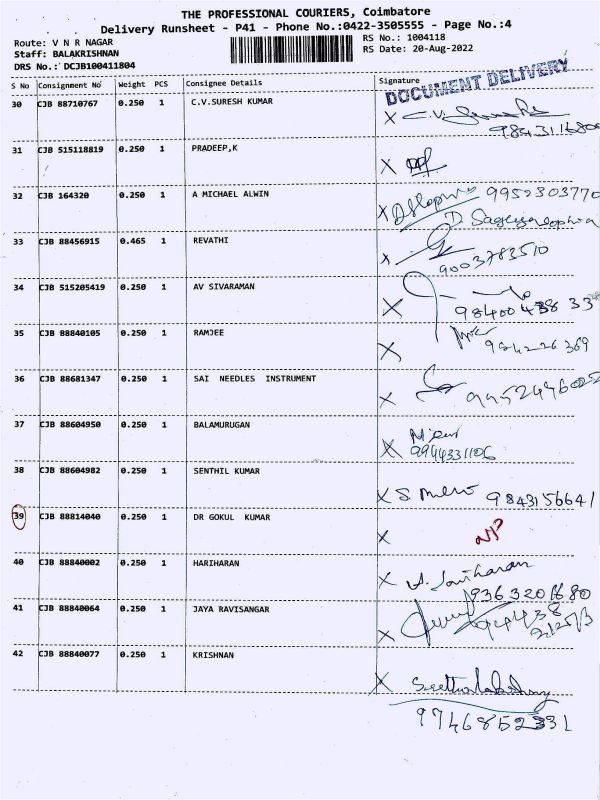 THE PROFESSIONAL COURIERS, Coimbatore
Delivery Runsheet - P41 - Phone No.:0422-3505555 - Page No.:4
Route: V N R NAGAR RS No.: 1004118
Staff: BALAKRISHNAN RS Date: 20-Aug-2022
DRS No.: DCJB100411804
DOCUMENT DELIVERY
S No Consignment No Weight PCS Consignee Details Signature
30 CJB 88710767 0.250 1 C.V.SURESH KUMAR X
9843116800
31 CJB 515118819 0.250 1 PRADEEP,K X
32 CJB 164320 0.250 1 A MICHAEL ALWIN X 9952303770
33 CJB 88456915 0.465 1 REVATHI X
9003783510
34 CJB 515205419 0.250 1 AV SIVARAMAN X
35 CJB 88840105 0.250 1 RAMJEE X
36 CJB 88681347 0.250 1 SAI NEEDLES INSTRUMENT X
37 CJB 88604950 0.250 1 BALAMURUGAN X
9944331106
38 CJB 88604982 0.250 1 SENTHIL KUMAR X 9843156641
39 CJB 88814040 0.250 1 DR GOKUL KUMAR X NP
40 CJB 88840002 0.250 1 HARIHARAN X
41 CJB 88840064 0.250 1 JAYA RAVISANGAR X
42 CJB 88840077 0.250 1 KRISHNAN X